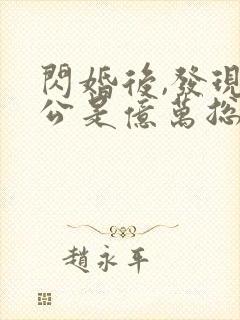 閃婚後,發現
公是億萬總
趙永年